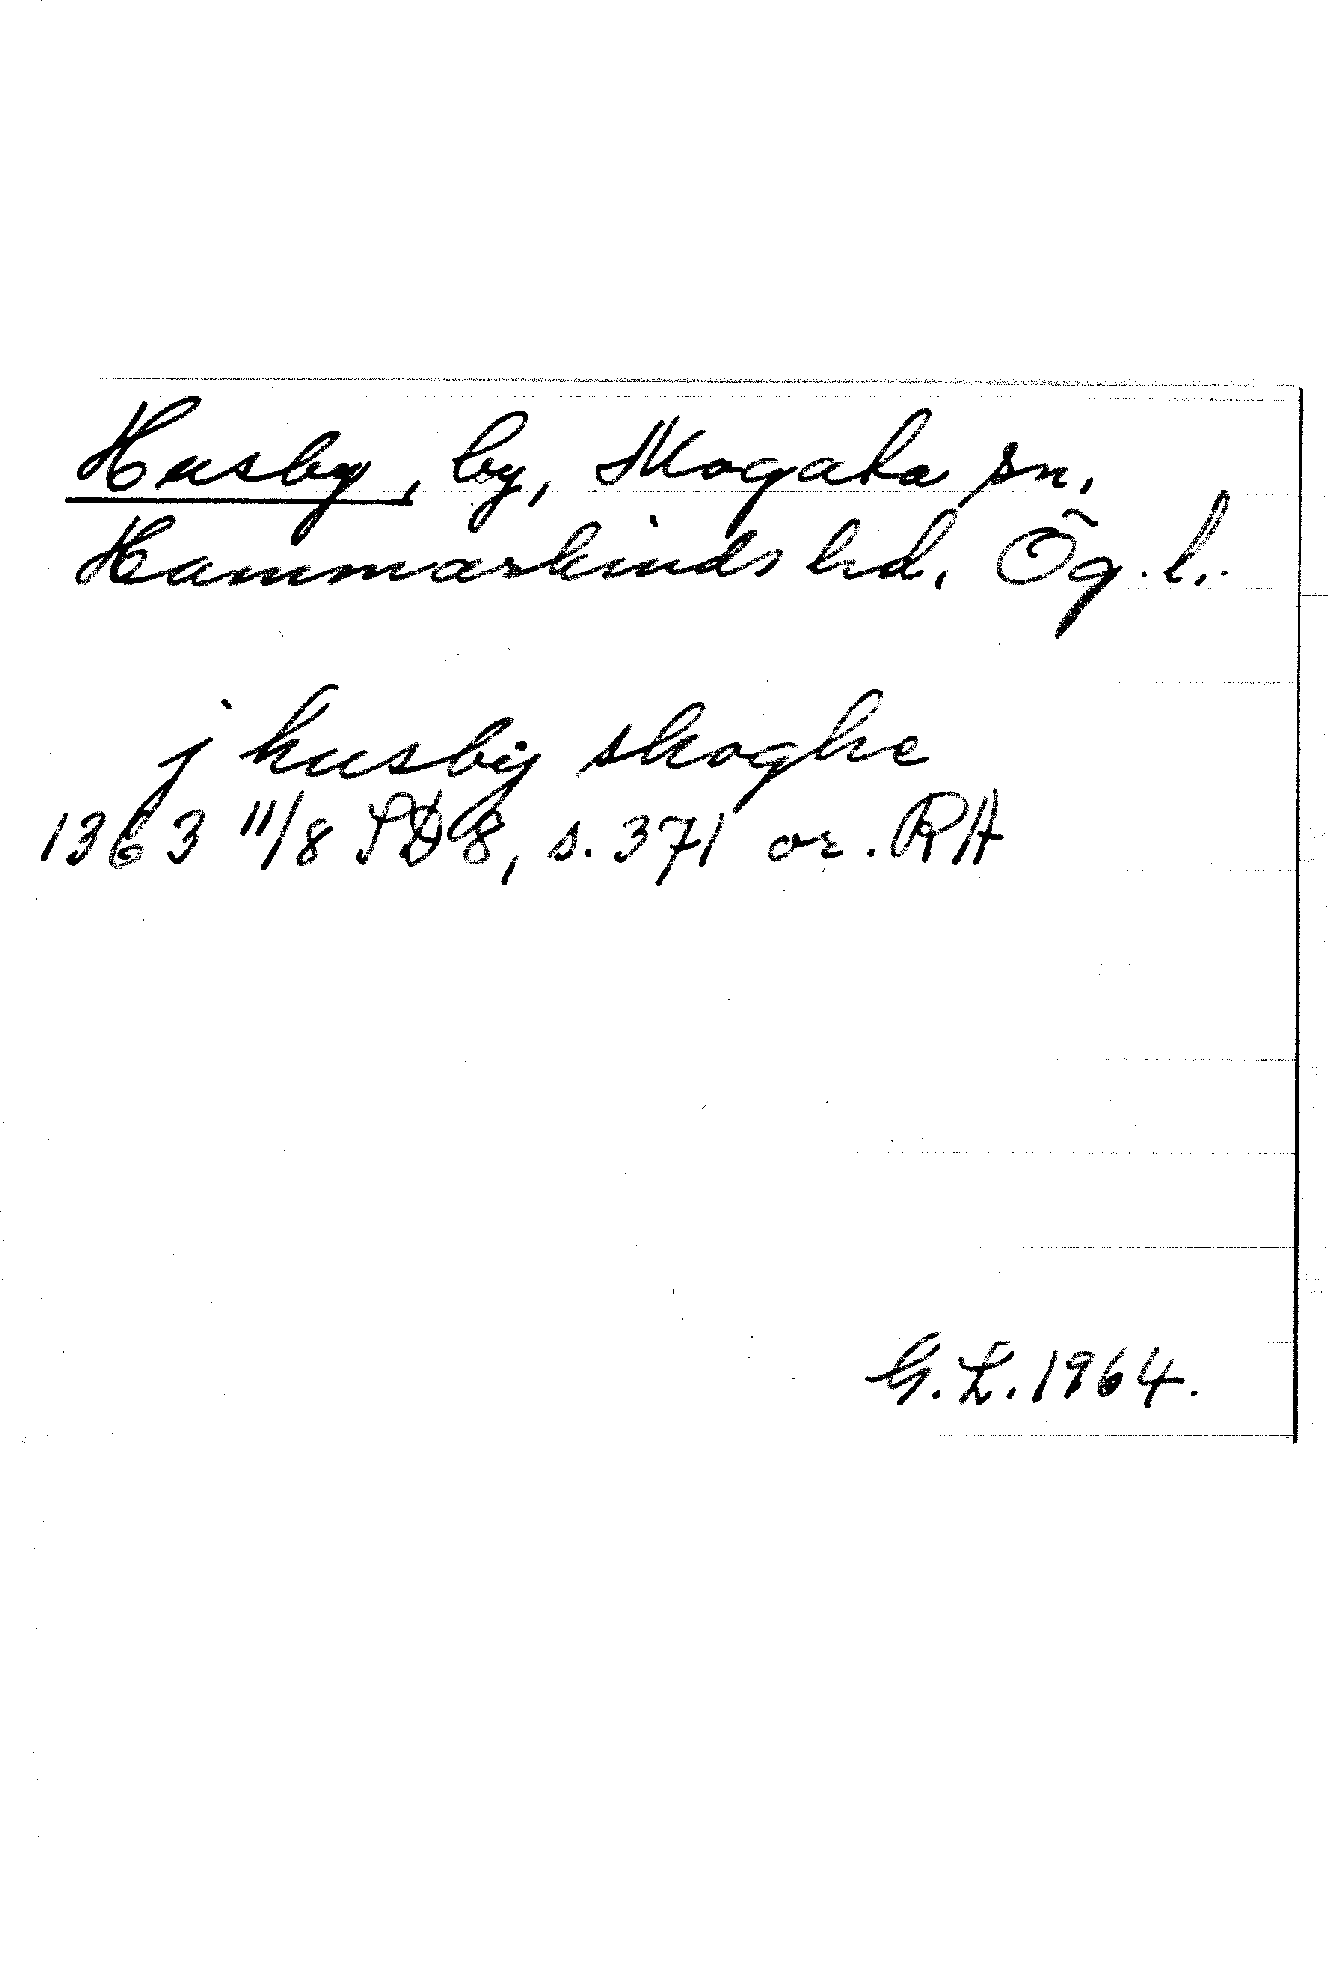 Husby, by, Skogaba sn,
Hammarkinds hd, Ög. l.
j husby skoghe
1363 11/8 SD 8, s. 371 or. RH
G. L. 1964.